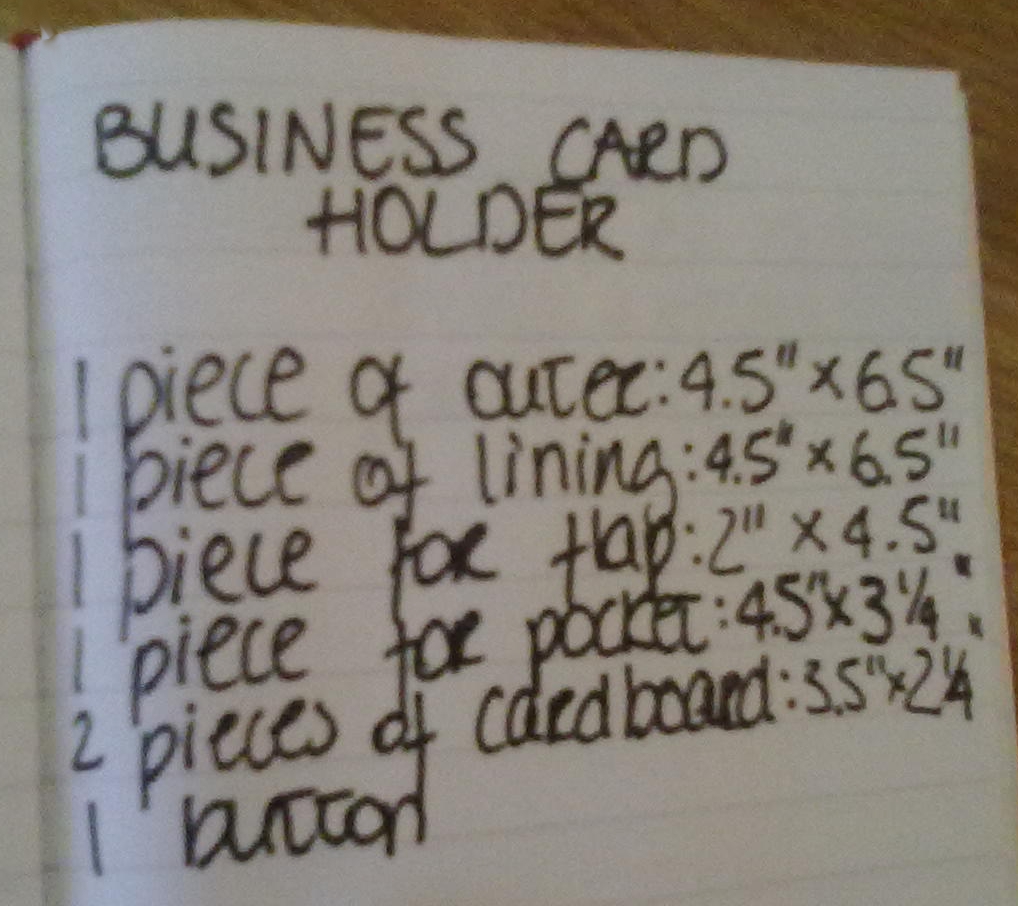 BUSINESS CARD
HOLDER
1 piece of outer: 4.5" x 6.5"
1 piece of lining: 4.5" x 6.5"
1 piece for flap: 2" x 4.5"
1 piece for pocket: 4.5" x 3 1/4"
2 pieces of cardboard: 3.5" x 2 1/4"
1 button